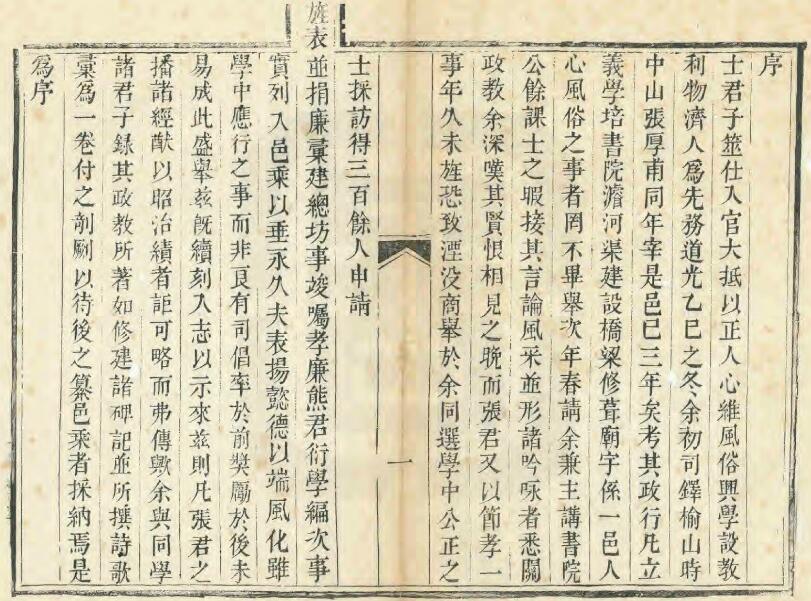 序
士君子筮仕入官大抵以正人心維風俗興學設教
利物濟人爲先務道光乙巳之冬余初司鐸榆山時
中山張厚甫同年宰是邑已三年矣考其政行凡立
義學培書院濬河渠建設橋梁修葺廟宇係一邑人
心風俗之事者罔不畢舉次年春請余兼主講書院
公餘課士之暇接其言論風采並形諸吟咏者悉關
政教余深嘆其賢恨相見之晚而張君又以節孝一
事年久未旌恐致湮没商舉於余同選學中公正之
一
士採訪得三百餘人申請
旌表並捐廉彙建總坊事竣囑孝廉熊君衍學編次事
實列入邑乘以垂永久夫表揚懿德以端風化雖
學中應行之事而非良有司倡率於前獎勵於後未
易成此盛舉茲旣續刻入志以示來茲則凡張君之
播諸經猷以昭治績者詎可略而弗傳歟余與同學
諸君子錄其政教所著如修建諸碑記並所撰詩歌
彙爲一卷付之剞劂以待後之纂邑乘者採納焉是
爲序